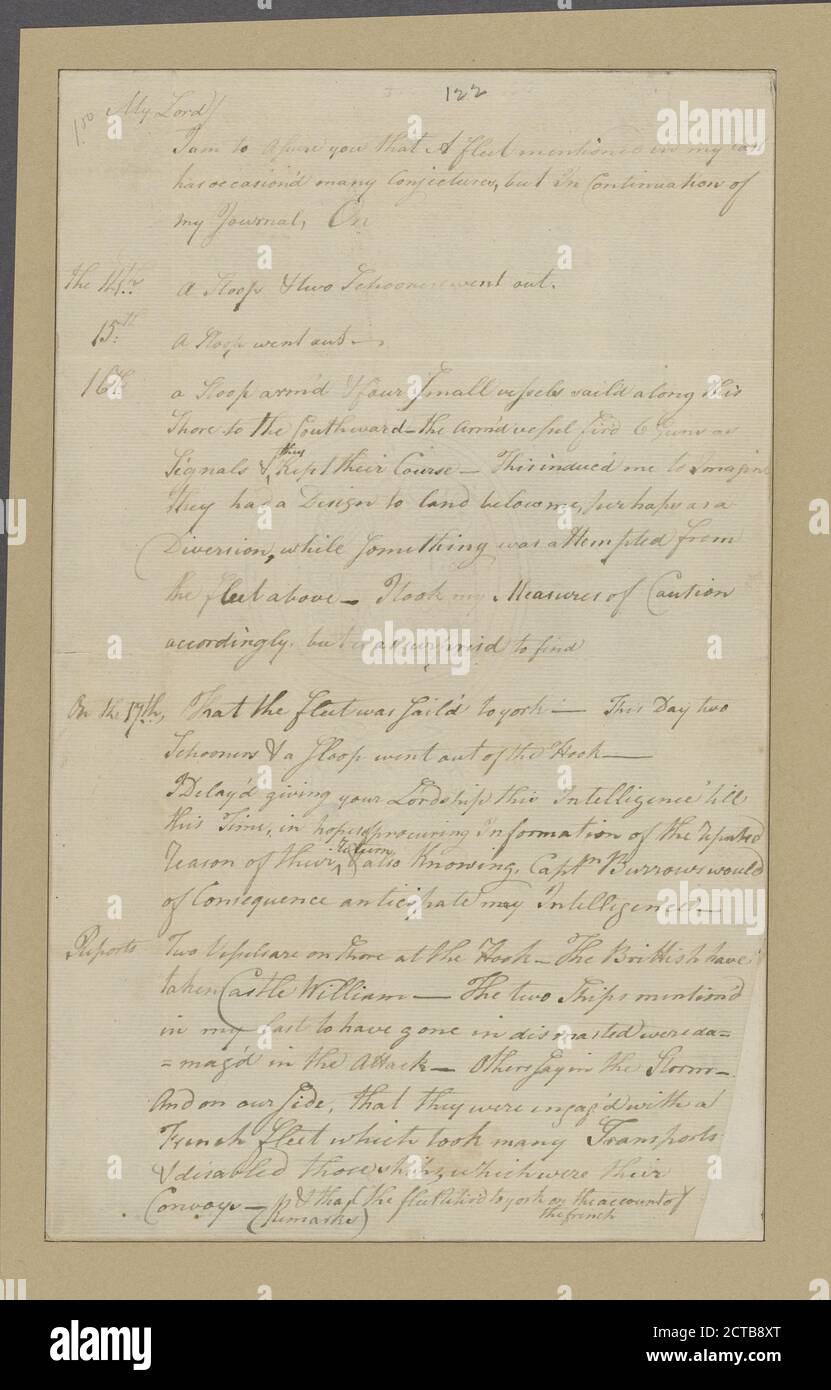 122
1.00 My Lord/
I am to assure you that A fleet mentioned in my last
has occasion'd many Conjectures, but In Continuation of
my Journal, On
the 14th A Sloop & two Schooners went out.
15th A Sloop went out—
16th a Sloop arm'd & four Small vessels sail'd along this
Shore to the Southward — the Arm'd vessel fir'd 6 Guns as
Signals & they Kept their Course — This induced me to Imagine
they had a Design to land below me, perhaps as a
Diversion, while something was attempted from
the fleet above — I took my Measures of Caution
accordingly, but was surprisd to find
On the 17th, That the fleet was Sail'd to york — This Day two
Schooners & a Sloop went out of the Hook —
I Delay'd giving your Lordship this Intelligence till
this Time, in hopes of procuring Information of the reputed
reason of their return & also Knowing, Captn Burrows would
of Consequence anticipate my Intelligence —
Reports Two Vessels are on Shore at the Hook — The Brittish have
taken Castle William — The two Ships mention'd
in my last to have gone in dismasted were da=
=mag'd in the Attack — Others say in the Storm —
And on our Side, that they were engag'd with a
French fleet which took many Transports
& disabled those ships which were their
Convoys — & that the fleet return'd to york on the account of
the french
(Remarks)
alamy
Image ID: 2CTB8XT
www.alamy.com